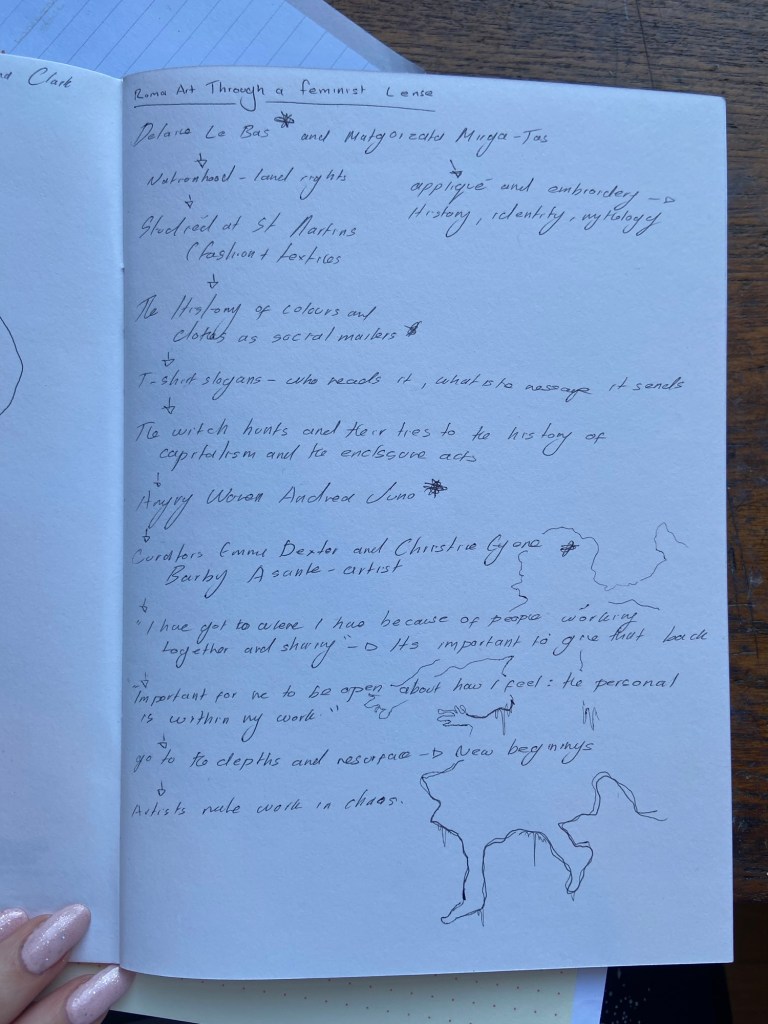 nd Clark
Roma Art Through a feminist Lense
Delaine Le Bas * and Malgorzata Mirga-Tas
Nationhood - land rights
appliqué and embroidery →
History, identity, mythology
Studied at St Martins
(fashion + textiles
The History of colours and
clothes as social markers *
T-shirt slogans - who reads it, what is the message it sends
The witch hunts and their ties to the history of
capitalism and the enclosure acts
Angry Women Andrea Juno *
Curators Emma Dexter and Christine *
Barby Asante - artist
"I have got to where I have because of people working
together and sharing" → It's important to give that back
"Important for me to be open about how I feel: the personal
is within my work."
go to the depths and resurface → New beginnings
Artists make work in chaos.